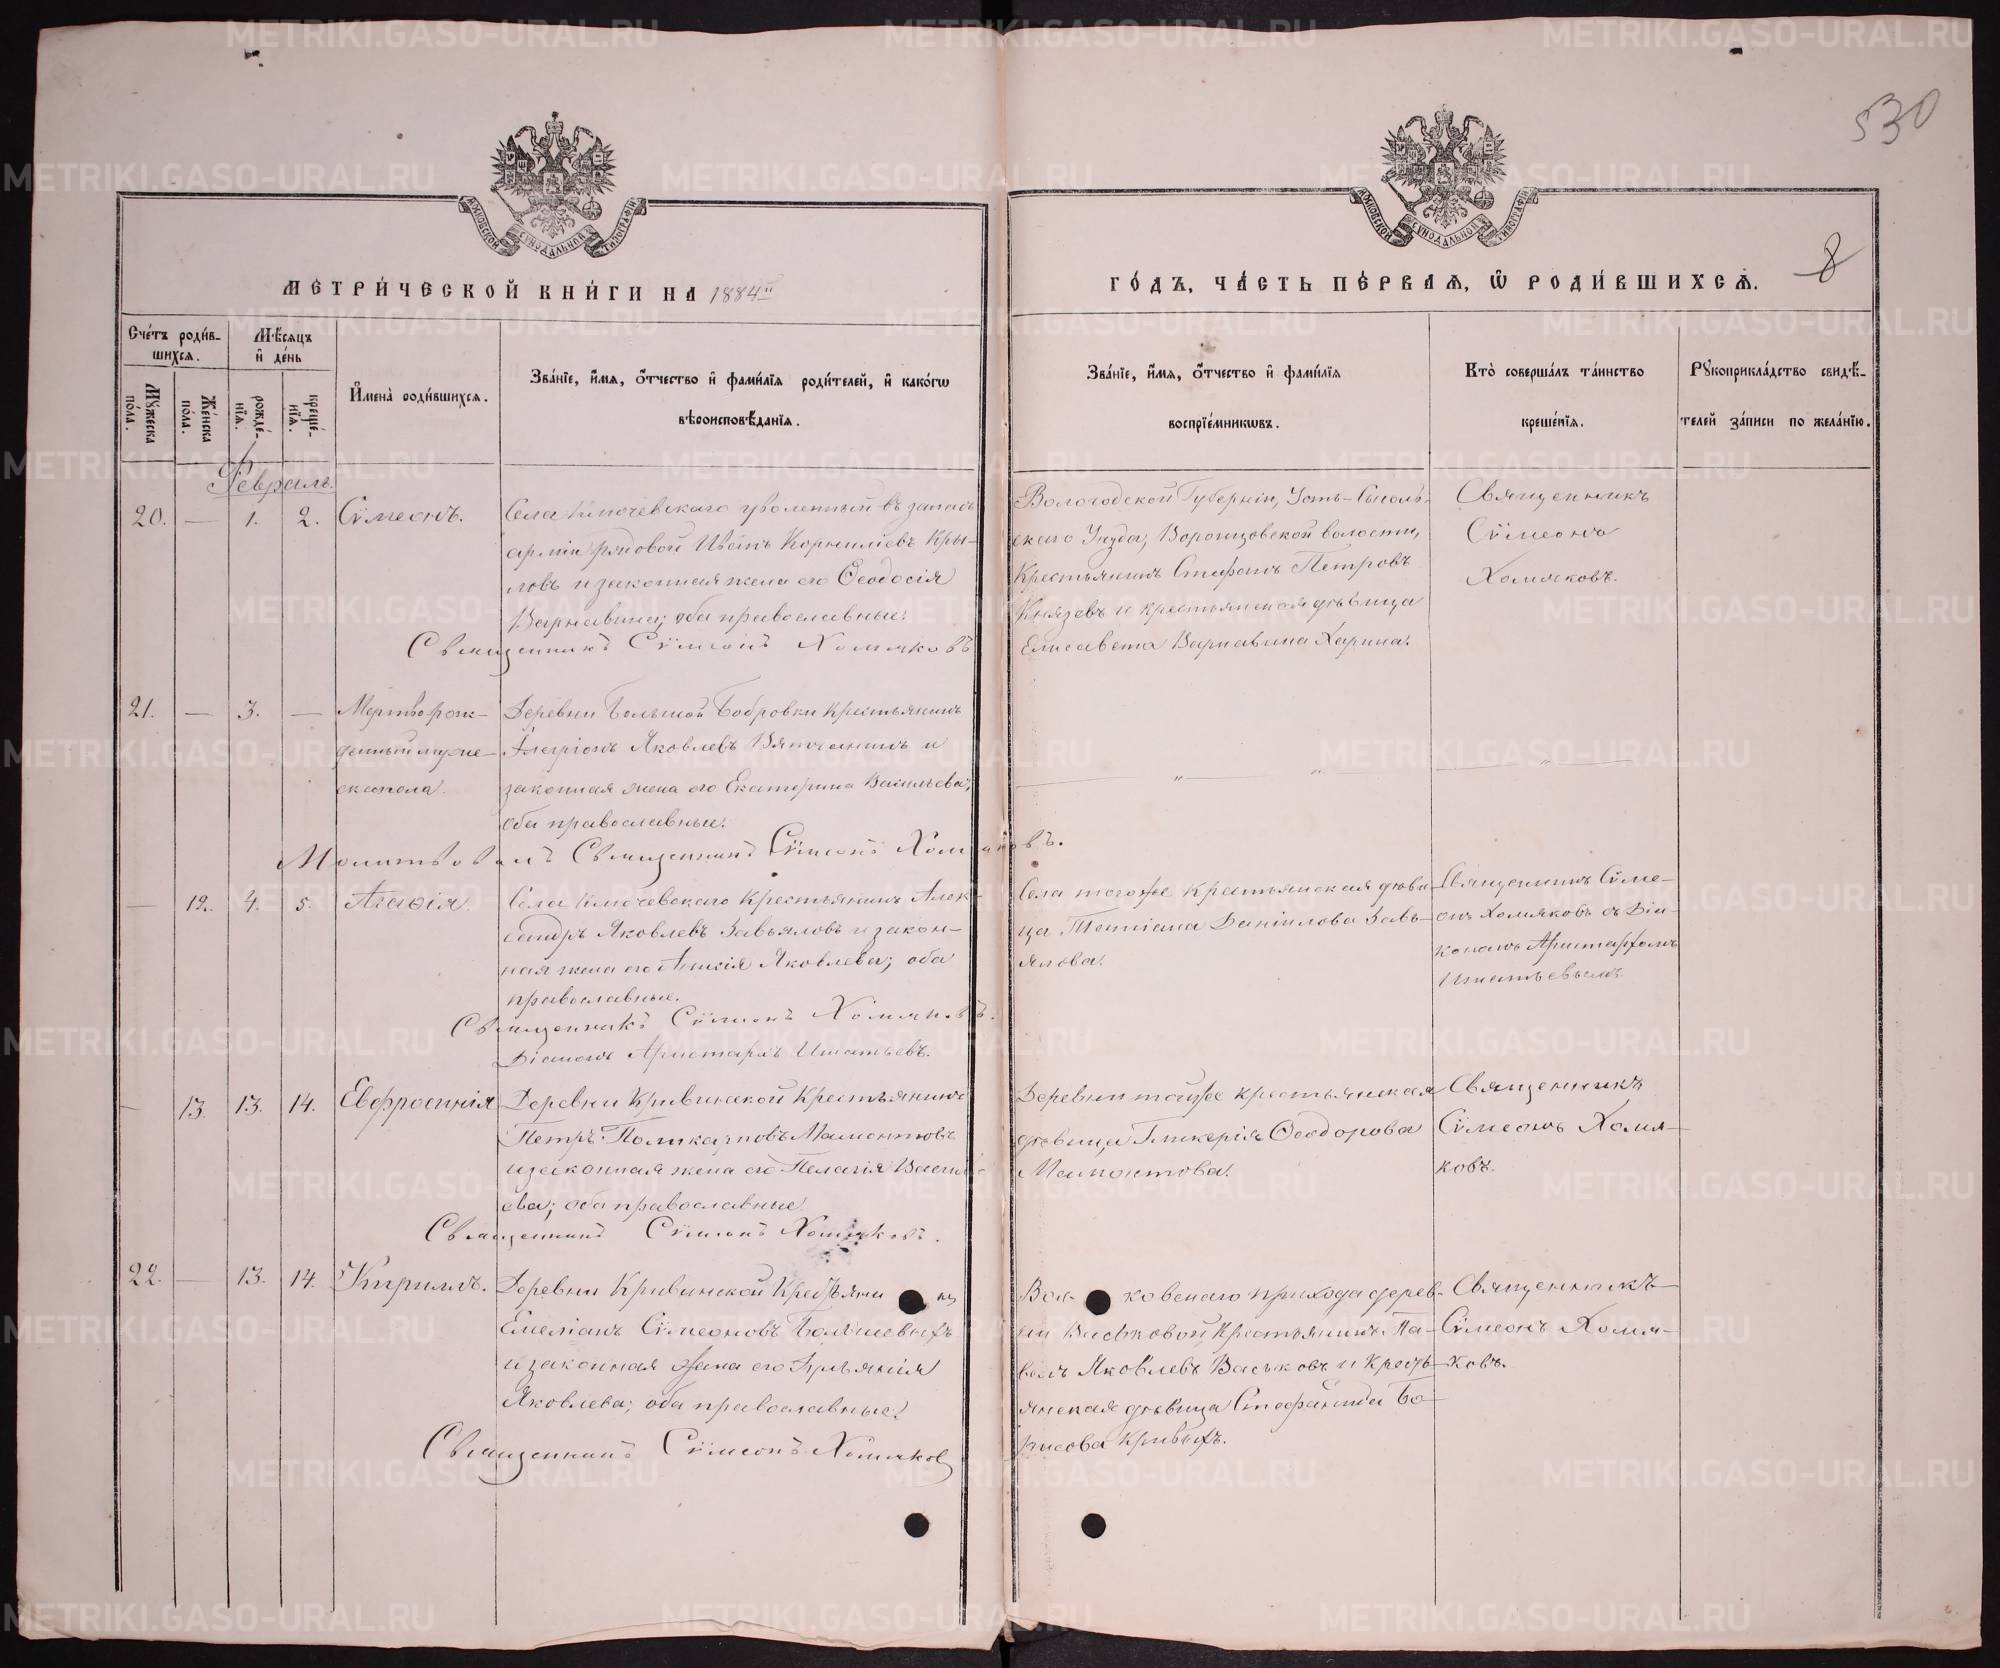 530
8
МОСКОВСКОЙ СѴНОДАЛЬНОЙ ТИПОГРАФІИ
МОСКОВСКОЙ СѴНОДАЛЬНОЙ ТИПОГРАФІИ
МЕТРИ́ЧЕСКОЙ КНИ́ГИ НА 1884й
ГО́ДЪ, ЧА́СТЬ ПЕ́РВАѦ, Ѡ РОДИ́ВШИХСѦ.
Сче́тъ роди́в-
шихсѧ.
Мѣ́сѧцъ
и҆ де́нь
Мꙋ́жеска
по́ла.
Же́нска
по́ла.
рожде́-
нїѧ.
креще́-
нїѧ.
И҆мена̀ роди́вшихсѧ.
Зва́нїе, и҆́мѧ, ѻ҆́тчество и҆ фами́лїѧ роди́телей, и҆ како́гѡ
вѣроисповѣ́данїѧ.
Зва́нїе, и҆́мѧ, ѻ҆́тчество и҆ фами́лїѧ
воспрїе́мникѡвъ.
Кто̀ соверша́лъ та́инство
креще́нїѧ.
Рꙋкоприкла́дство свидѣ́-
телей за́писи по жела́нїю.
Февраль.
20. — 1. 2. Сѵмеонъ.
Села уволенный въ запасъ
арміи рядовой Иванъ Корниліевъ Кры-
ловъ и законная жена его Ѳеодосія
Варнавина; оба православные.
Священникъ Сѵмеонъ Хомяковъ
Вологодской Губерніи, Усть-Сысоль-
скаго Уѣзда, Воронцовской волости,
Крестьянинъ Стефанъ Петровъ
Князевъ и крестьянская дѣвица
Елисавета Варнавина Харина.
Священникъ
Сѵмеонъ
Хомяковъ.
21. — 3. — Мертворож-
денный муже-
скаго пола.
Деревни Большой Бобровки Крестьянинъ
Иларіонъ Яковлевъ Вятчанинъ и
законная жена его Екатерина Васильева;
оба православные.
Молитвовалъ Священникъ Сѵмеонъ Хомяковъ.
— 12. 4. 5. Агаѳія.
Села Крестьянинъ Алек-
сандръ Яковлевъ Завьяловъ и закон-
ная жена его Яковлева; оба
православные.
Священникъ Сѵмеонъ Хомяковъ.
Діаконъ Аристархъ Игнатьевъ.
Села того же крестьянская дѣви-
ца Татіана Даніилова Завь-
ялова.
Священникъ Сѵме-
онъ Хомяковъ съ Діа-
кономъ Аристархомъ
Игнатьевымъ
— 13. 13. 14. Евфросинія
Деревни Кривинской Крестьянинъ
Петръ Поликарповъ Мамонтовъ
и законная жена его Пелагія Василь-
ева; оба православные
Священникъ Сѵмеонъ Хомяковъ.
Деревни той же крестьянская
дѣвица Гликерія Ѳеодорова
Мамонтова.
Священникъ
Сѵмеонъ Хомя-
ковъ.
22. — 13. 14. Кириллъ.
Деревни Кривинской Крестьяни нъ
Емеліанъ Сѵмеоновъ
и законная жена его
Яковлева; оба православные.
Священникъ Сѵмеонъ Хомяковъ
Вол- ковскаго прихода дерев-
ни Васьковой Крестьянинъ Па-
велъ Яковлевъ Васьковъ и Кресть-
янская дѣвица Стефанида Бо-
рисова Кривыхъ.
Священникъ
Сѵмеонъ Хомя-
ковъ.
METRIKI.GASO-URAL.RU